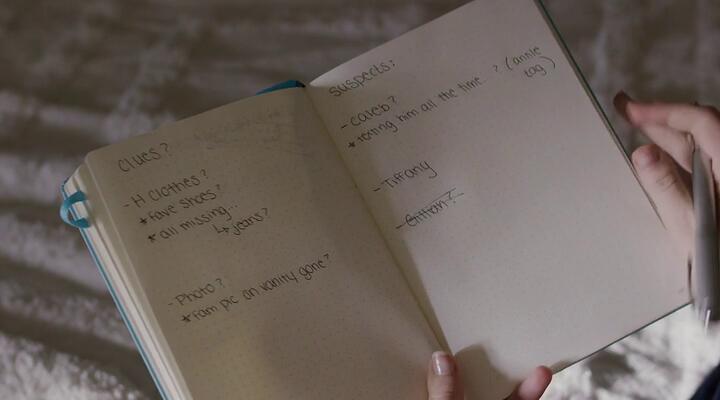 clues?
- H clothes?
* fave shoes?
* all missing...
↳ jeans?
- Photo?
* fam pic on vanity gone?
suspects:
- caleb?
* texting him all the time ? (annie
tag)
- Tiffany